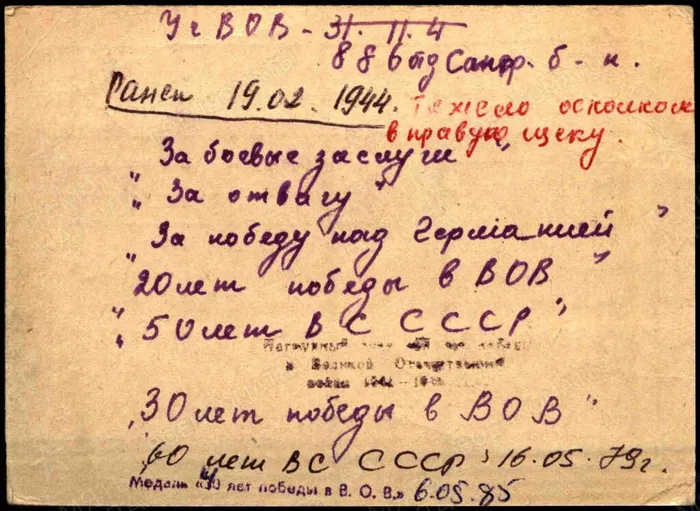 Уч ВОВ - 31. 11. 4
886 тд Сапер. б-н.
Ранен 19.02.1944. Тяжело осколком
в правую щеку.
"За боевые заслуги"
"За отвагу"
"За победу над Германией"
"20 лет победы в ВОВ"
"50 лет ВС СССР"
Нагрудный победы
в Великой Отечественной
войне
"30 лет победы в ВОВ"
"60 лет ВС СССР" 16.05.79г.
Медаль "40 лет победы в В. О. В." 6.05.85